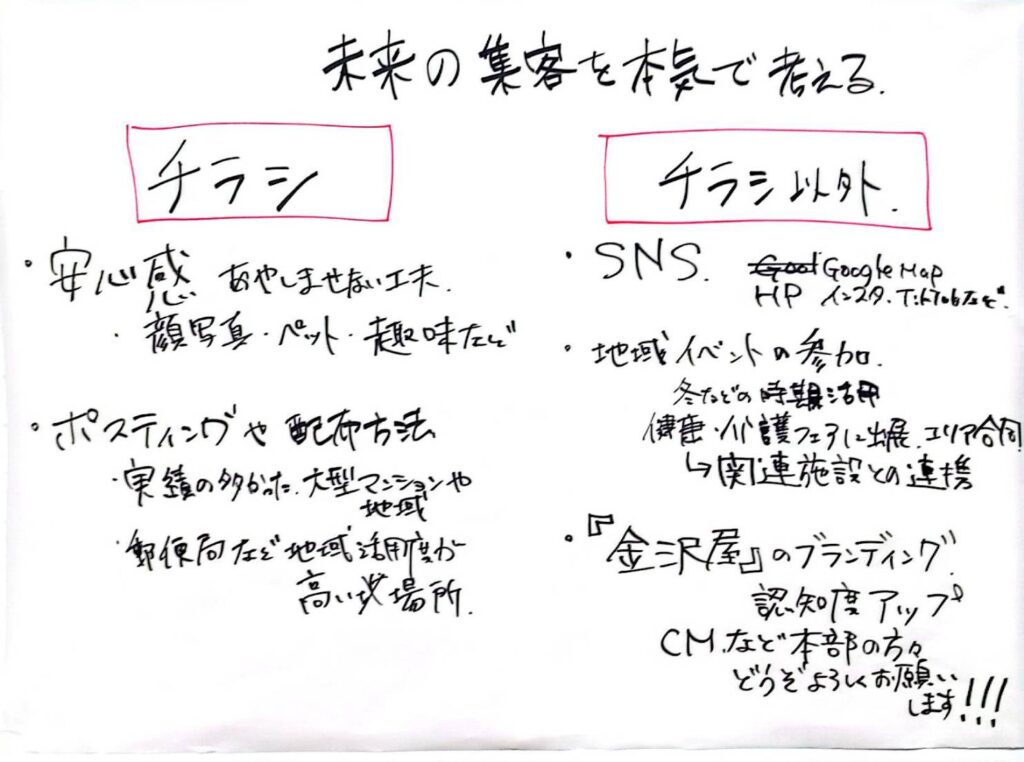 未来の集客を本気で考える.
チラシ
・安心感 あやしませない工夫.
・顔写真・ペット・趣味など
・ポスティングや配布方法
・実績の多かった.大型マンションや
地域
・郵便局など地域活用度が
高い場所.
チラシ以外.
・SNS. Google Map
HP インスタ.
・地域イベントの参加.
冬などの時期活用
健康・介護フェアに出展.エリア合同
↳関連施設との連携
・『金沢屋』のブランディング
認知度アップ
CM.など本部の方々
どうぞよろしくお願い
します!!!